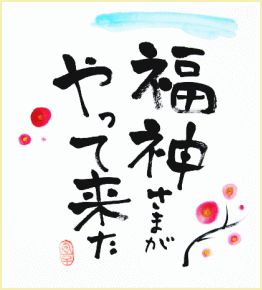 福神さまが
やって来た